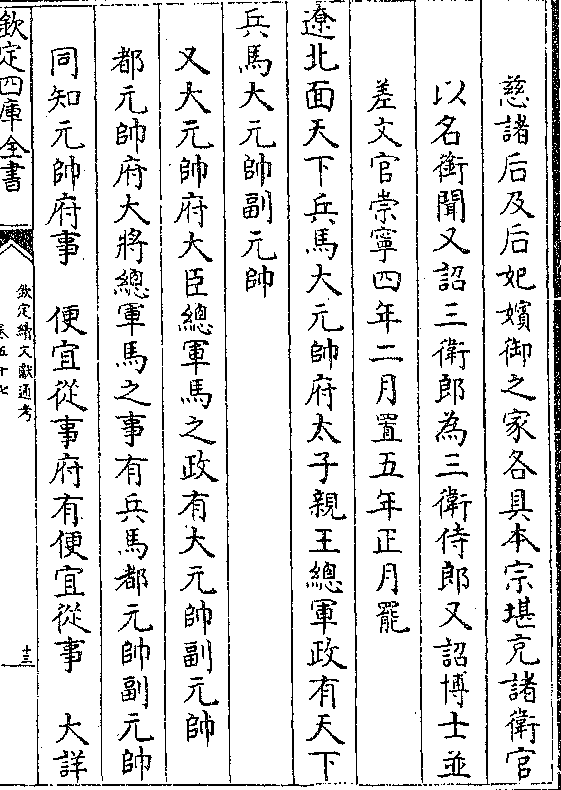 慈諸后及后妃嬪御之家各具本宗堪充諸衛官
以名銜聞又詔三衛郎為三衛侍郎又詔博士並
差文官崇寧四年二月置五年正月罷
遼北面天下兵馬大元帥府太子親王總軍政有天下
兵馬大元帥副元帥
又大元帥府大臣總軍馬之政有大元帥副元帥
都元帥府大將總軍馬之事有兵馬都元帥副元帥
同知元帥府事　便宜從事府有便宜從事　大詳
欽定四庫全書
欽定續文獻通考
卷五十七
十三